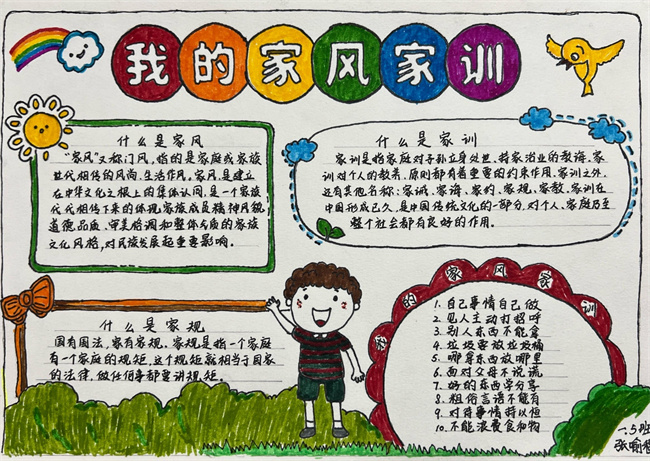 我的家风家训
什么是家风
"家风"又称门风,指的是家庭或家族
世代相传的风尚、生活作风。家风,是建立
在中华文化之根上的集体认同,是一个家族
代代相传下来的体现家族成员精神风貌
道德品质、审美格调和整体气质的家族
文化风格,对民族发展起重要影响。
什么是家训
家训是指家庭对子孙立身处世、持家治业的教诲。家
训对个人的教养、原则都有着重要的约束作用。家训之外,
还有其他名称:家诫、家诲、家约、家规、家教。家训在
中国形成已久,是中国传统文化的一部分,对个人、家庭乃至
整个社会都有良好的作用。
什么是家规
国有国法,家有家规。家规是指一个家庭
有一个家庭的规矩,这个规矩就相当于国家
的法律,做任何事都要讲规矩。
的家风家训
1. 自己事情自己做
2. 见人主动打招呼
3. 别人东西不能拿
4. 垃圾要放垃圾桶
5. 哪拿东西放哪里
6. 面对父母不说谎
7. 好的东西学分享
8. 粗俗言语不能有
9. 对待事情持以恒
10. 不能浪费食和物
一.5班
张喻